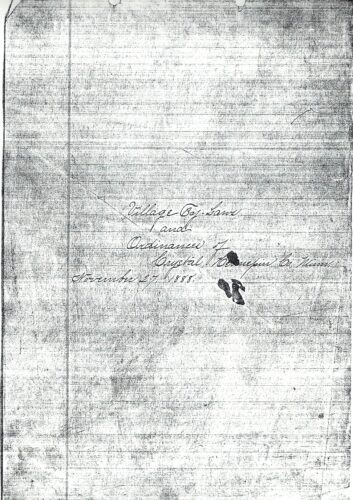 Village By-Laws
and
Ordinances of
Crystal, Hennepin Co, Minn
November 27, 1888.